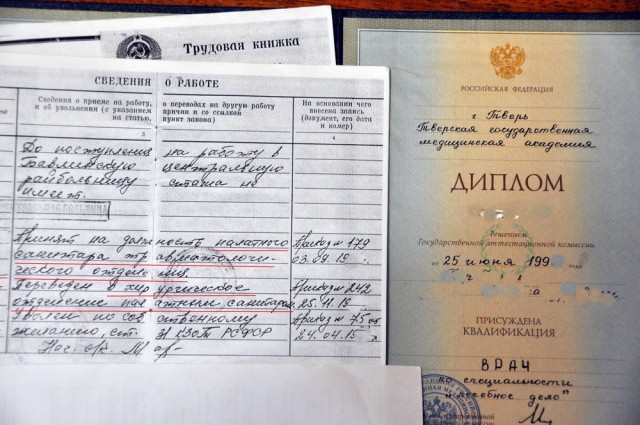 Трудовая книжка
СВЕДЕНИЯ О РАБОТЕ
Сведения о приеме на работу, о переводах на другую работу
и об увольнении (с указанием и со ссылкой
на статью, пункт закона)
На основании чего
внесена запись
(документ, его дата
и номер)
3
4
До поступления на работу в
Бавлинскую центральную
райбольницу стажа не
имеет.
Принят на должность палатного
санитара травматологи-
ческого отделения.
Приказ 179
03.09.19
Переведен в хирургическое
отделение санитаром
Приказ 242
25.11.19
Уволен по собственному
желанию, ст. 31 КЗОТ РСФСР
Приказ 75
24.04.15
РОССИЙСКАЯ ФЕДЕРАЦИЯ
г. Тверь
Тверская государственная
медицинская академия
ДИПЛОМ
Решением
Государственной аттестационной комиссии
от 25 июня 199
ПРИСУЖДЕНА
КВАЛИФИКАЦИЯ
ВРАЧ
по специальности
"лечебное дело"